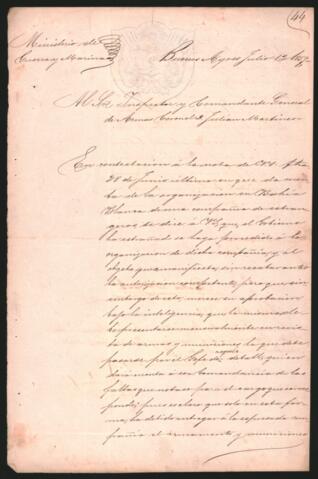 44
Ministerio de
Guerra y Marina
Buenos Ayres Julio 12
Al Sor Inspector y Comandante General
de Armas Coronel D. Julian Martinez
En contestacion à la nota de VS. fha
28 de Junio ultimo en que dà cuen
ta de la organizacion en Bahia
Blanca de una compañia de estran
geros, se dice à VS. que el Gobierno
ha estrañad se haya procedido à la
organizacion de dicha compañia, y al
objeto que manifiesta, sin recabar antes
la autorizacion competente, pero que sin
embargo de esto, merece su aprobacion
bajo la inteligencia, que la misma debe
presentarse mensualmente en revis
ta de armas y municiones, la que debe
pasarse por el Gefe del detall, quien
darà cuenta à esa Comandancia de las
faltas que notase para el cargo que corres
ponde; pues es claro que solo en esta for
ma, ha debido entregar à la espresada com
pañia el armamento y municiones